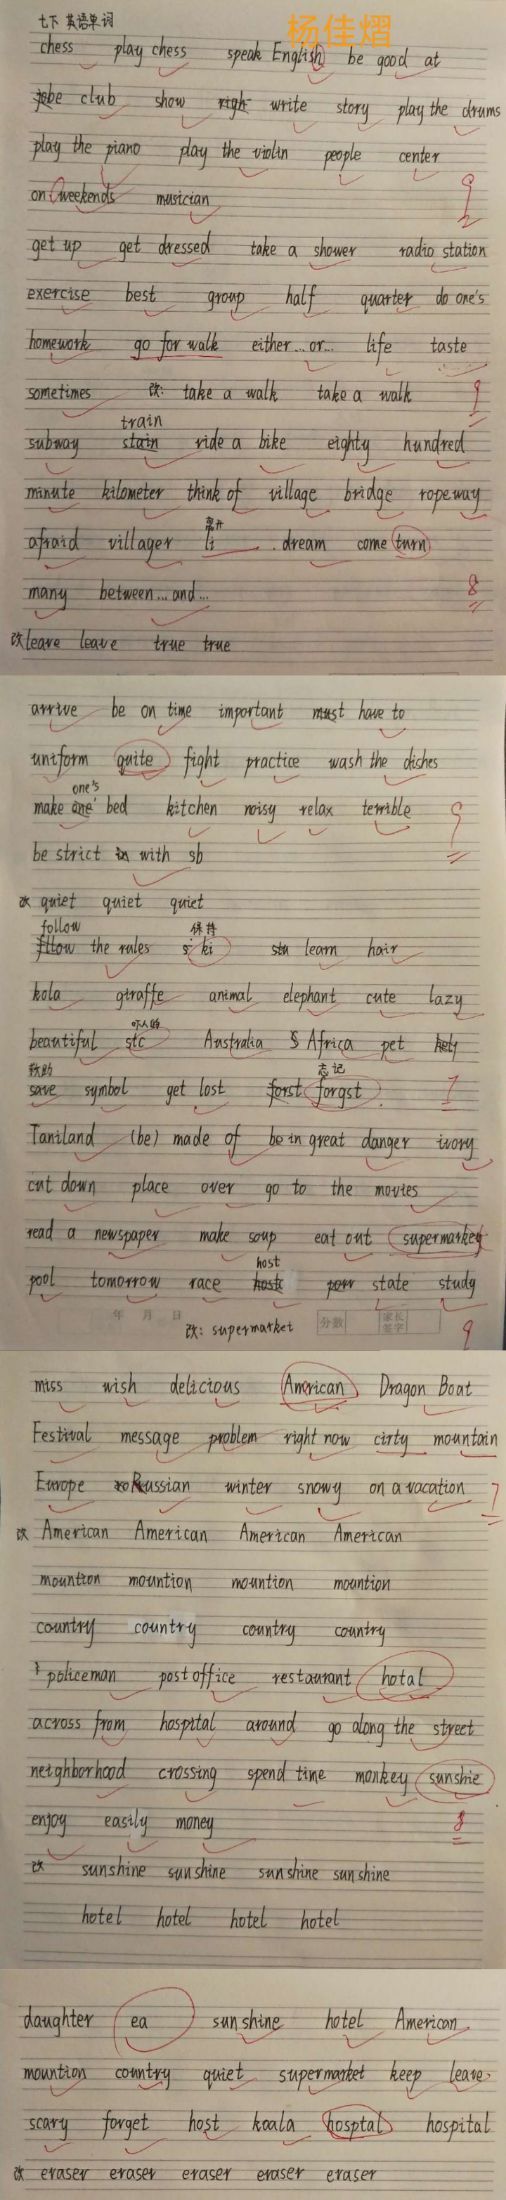 七下 英语单词 杨佳熠
chess play chess speak English be good at
be club show write story play the drums
play the piano play the violin people center
on weekends musician 92
get up get dressed take a shower radio station
exercise best group half quarter do one's
homework go for walk either...or... life taste
sometimes 改: take a walk take a walk 9
train
subway stain ride a bike eighty hundred
minute kilometer think of village bridge ropeway
离开
afraid villager li dream come turn
8
many between...and...
改 leave leave true true
arrive be on time important must have to
uniform quite fight practice wash the dishes
one's
make one' bed kitchen noisy relax terrible 9
be strict in with sb
改 quiet quiet quiet
follow 保持
fllow the rules s ki stu learn hair
kola giraffe animal elephant cute lazy
吓人的
beautiful stc Australia S Africa pet
救助 忘记
save symbol get lost forst forgst 7
Tailand (be) made of be in great danger ivory
cut down place over go to the movies
read a newspaper make soup eat out supermarkey
host
pool tomorrow race hosk state study
年 月 日 改: supermarket 分数 家长签字 9
miss wish delicious American Dragon Boat
Festival message problem right now cirty mountain
Europe Russian winter snowy on a vacation 7
改 American American American American
mountion mountion mountion mountion
country country country country
policeman post office restaurant hotal
across from hospital around go along the street
neighborhood crossing spend time monkey sunshie
enjoy easily money 8
改 sunshine sunshine sunshine sunshine
hotel hotel hotel hotel
daughter ea sunshine hotel American
mountion country quiet supermarket keep leave
scary forget host koala hosptal hospital
改 eraser eraser eraser eraser eraser